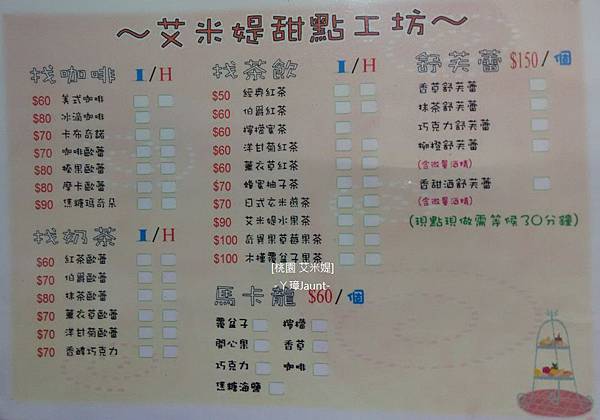 ～艾米媞甜點工坊～
找咖啡 I/H
$60 美式咖啡
$80 冰滴咖啡
$70 卡布奇諾
$70 咖啡歐蕾
$80 榛果歐蕾
$80 摩卡歐蕾
$90 焦糖瑪奇朵
找奶茶 I/H
$60 紅茶歐蕾
$70 伯爵歐蕾
$80 抹茶歐蕾
$70 薰衣草歐蕾
$70 洋甘菊歐蕾
$70 香醇巧克力
找茶飲 I/H
$50 經典紅茶
$60 伯爵紅茶
$60 檸檬蜜茶
$60 洋甘菊紅茶
$60 薰衣草紅茶
$70 蜂蜜柚子茶
$70 日式玄米煎茶
$90 艾米媞水果茶
$100 奇異果草莓果茶
$100 木槿覆盆子果茶
馬卡龍 $60/個
覆盆子 檸檬
開心果 香草
巧克力 咖啡
焦糖海鹽
舒芙蕾 $150/個
香草舒芙蕾
抹茶舒芙蕾
巧克力舒芙蕾
柳橙舒芙蕾
(含微量酒精)
香甜酒舒芙蕾
(含微量酒精)
(現點現做需等候30分鐘)
[桃園 艾米媞]
-ㄚ璋Jaunt-